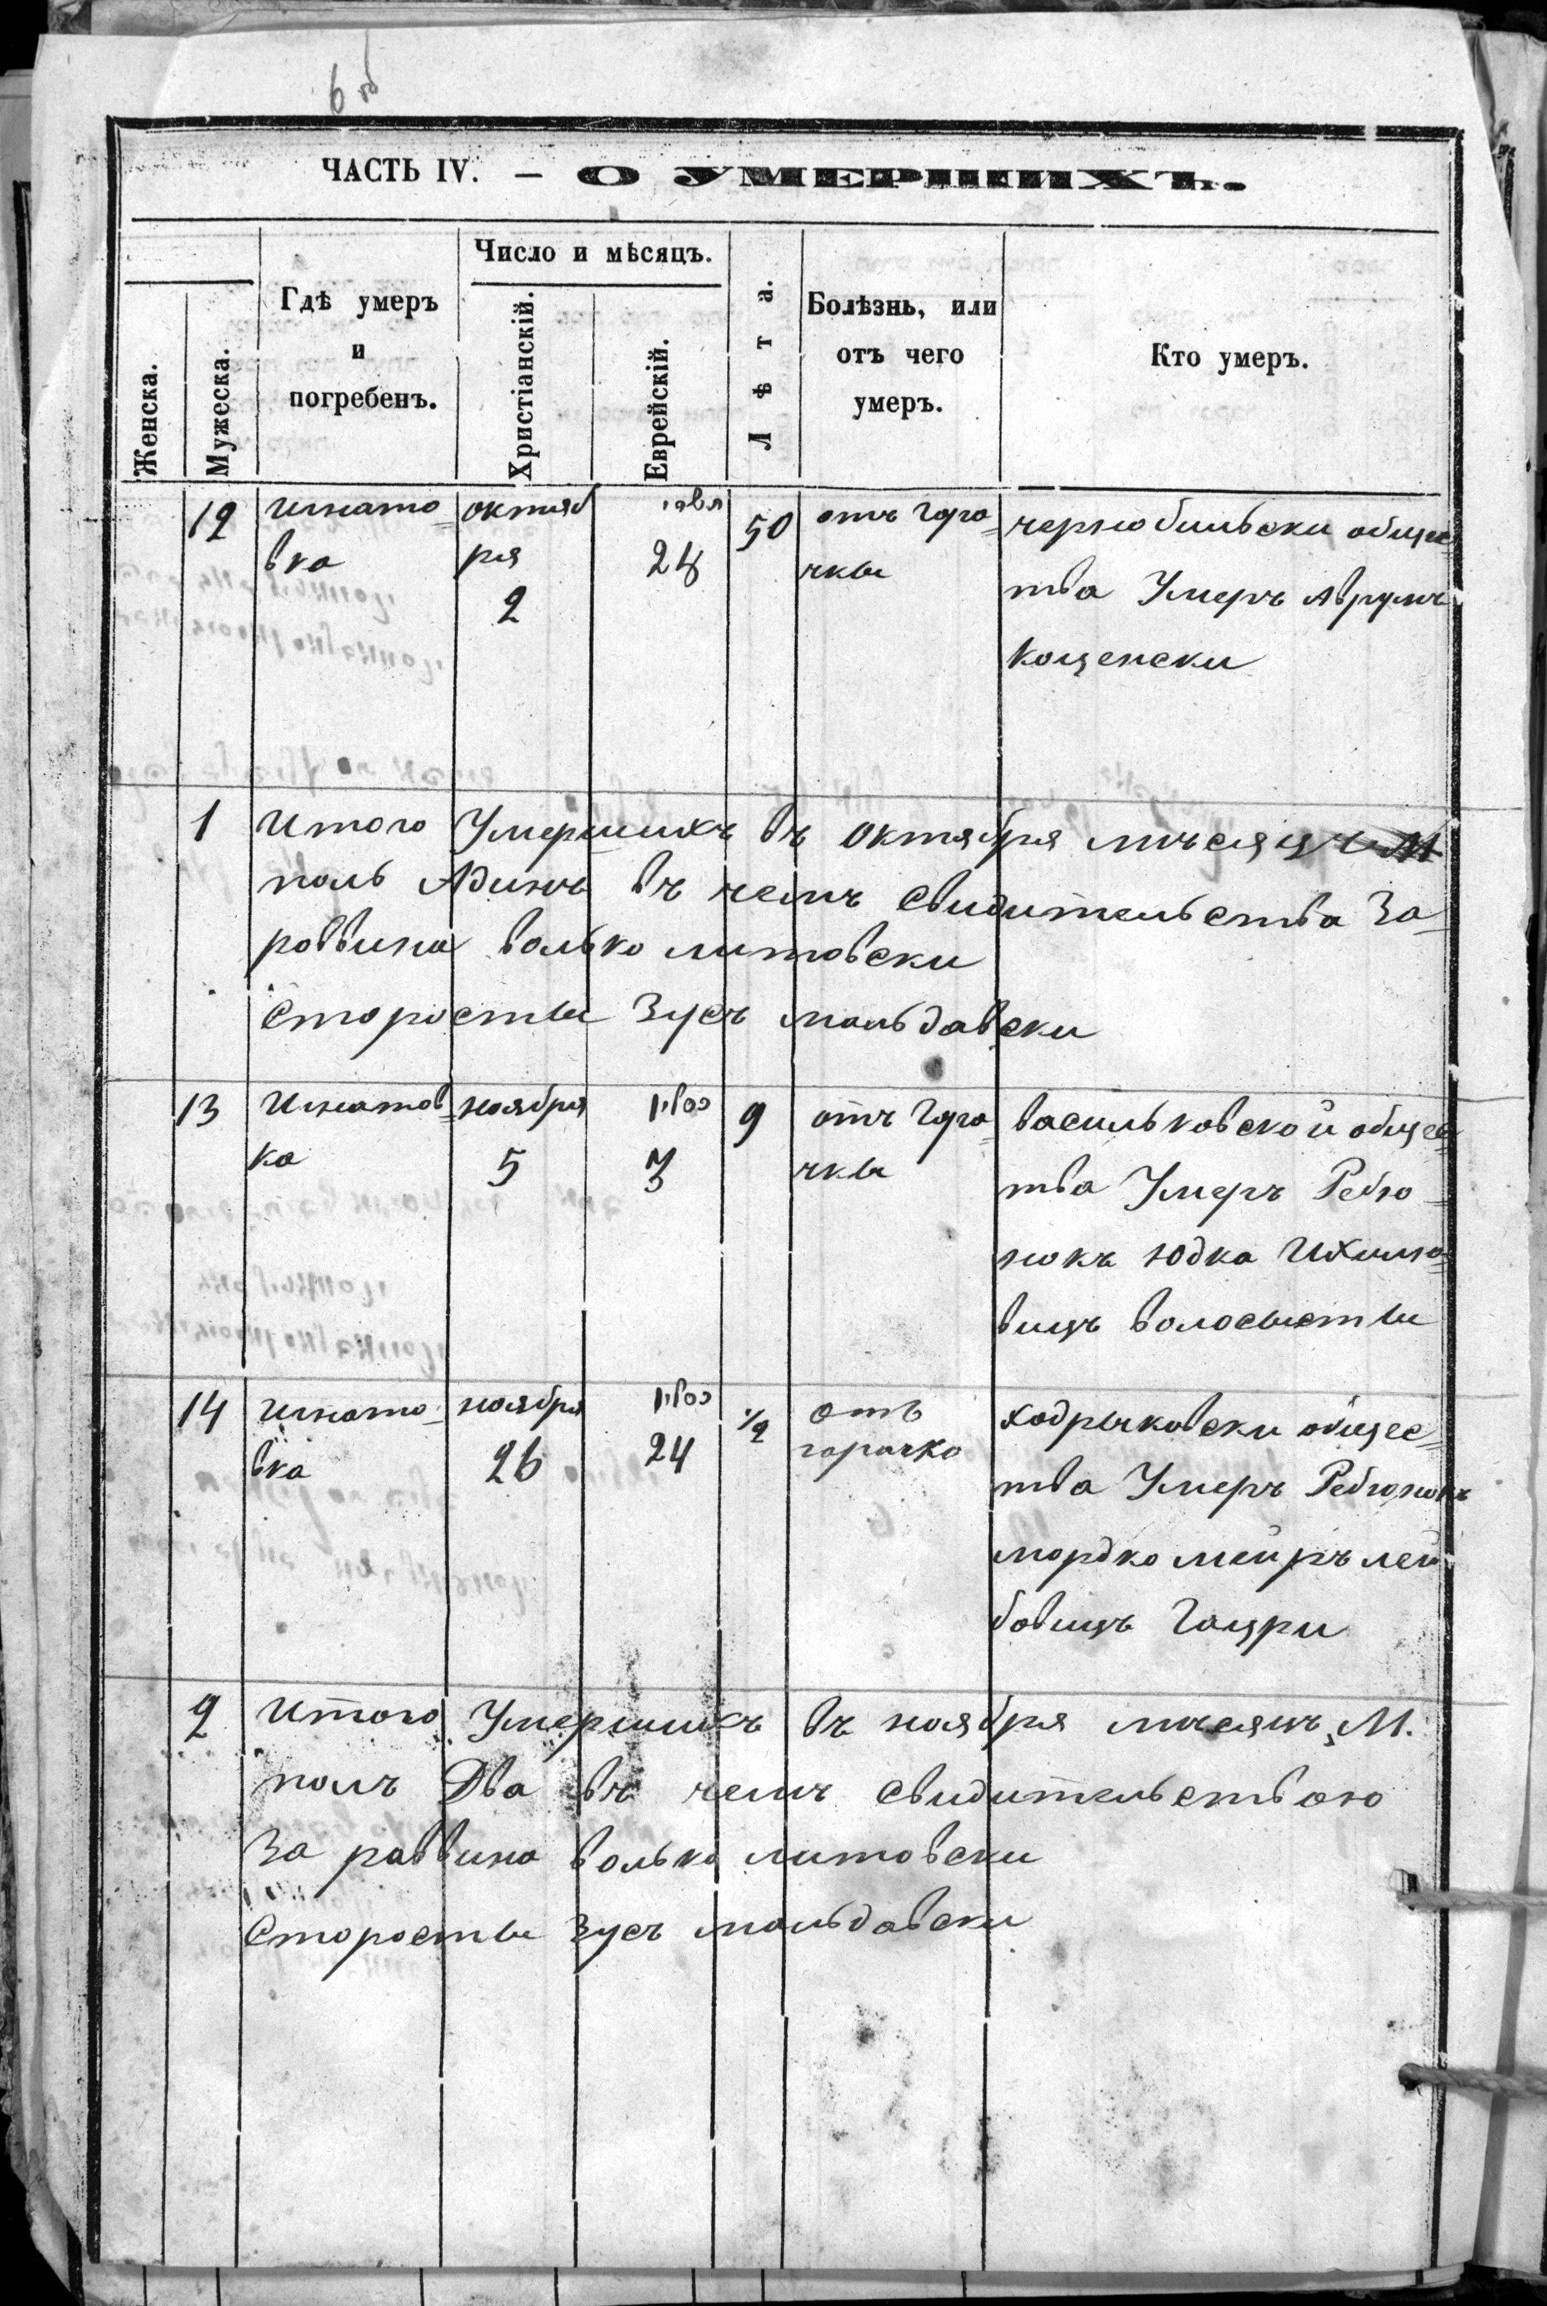 6 об
ЧАСТЬ IV. — О УМЕРШИХЪ.
Женска.
Мужеска.
Гдѣ умеръ
и
погребенъ.
Число и мѣсяцъ.
Христіанскій.
Еврейскій.
Лѣта.
Болѣзнь, или
отъ чего
умеръ.
Кто умеръ.
12
игнато=
вка
октяб
ря
2
28
50
отъ гора=
чкы
чернобильски общес=
тва Умеръ Аврумъ
кощенски
1
итого Умершихъ въ октября мъсяцъ М
полъ Адинъ въ чемъ свидительства За=
раввина волько литовски
Старосты Зусъ мольдавски
13
Игнатов=
ка
ноября
5
כסליו
3
9
отъ гора=
чкы
васильковской общес=
тва Умеръ Ребю=
нокъ Юдка Ихило=
вищъ волосысты
14
игнато=
вка
ноября
26
כסליו
24
1/2
отъ
горачко
ходрычковски общес=
тва Умеръ Ребюнокъ
мордко мейръ лей
бовищъ
2
Итого Умершихъ въ ноября мъсяцъ М.
полъ Два въ чемъ свидительствою
За раввина волько литовски
Старосты Зусъ мольдавски